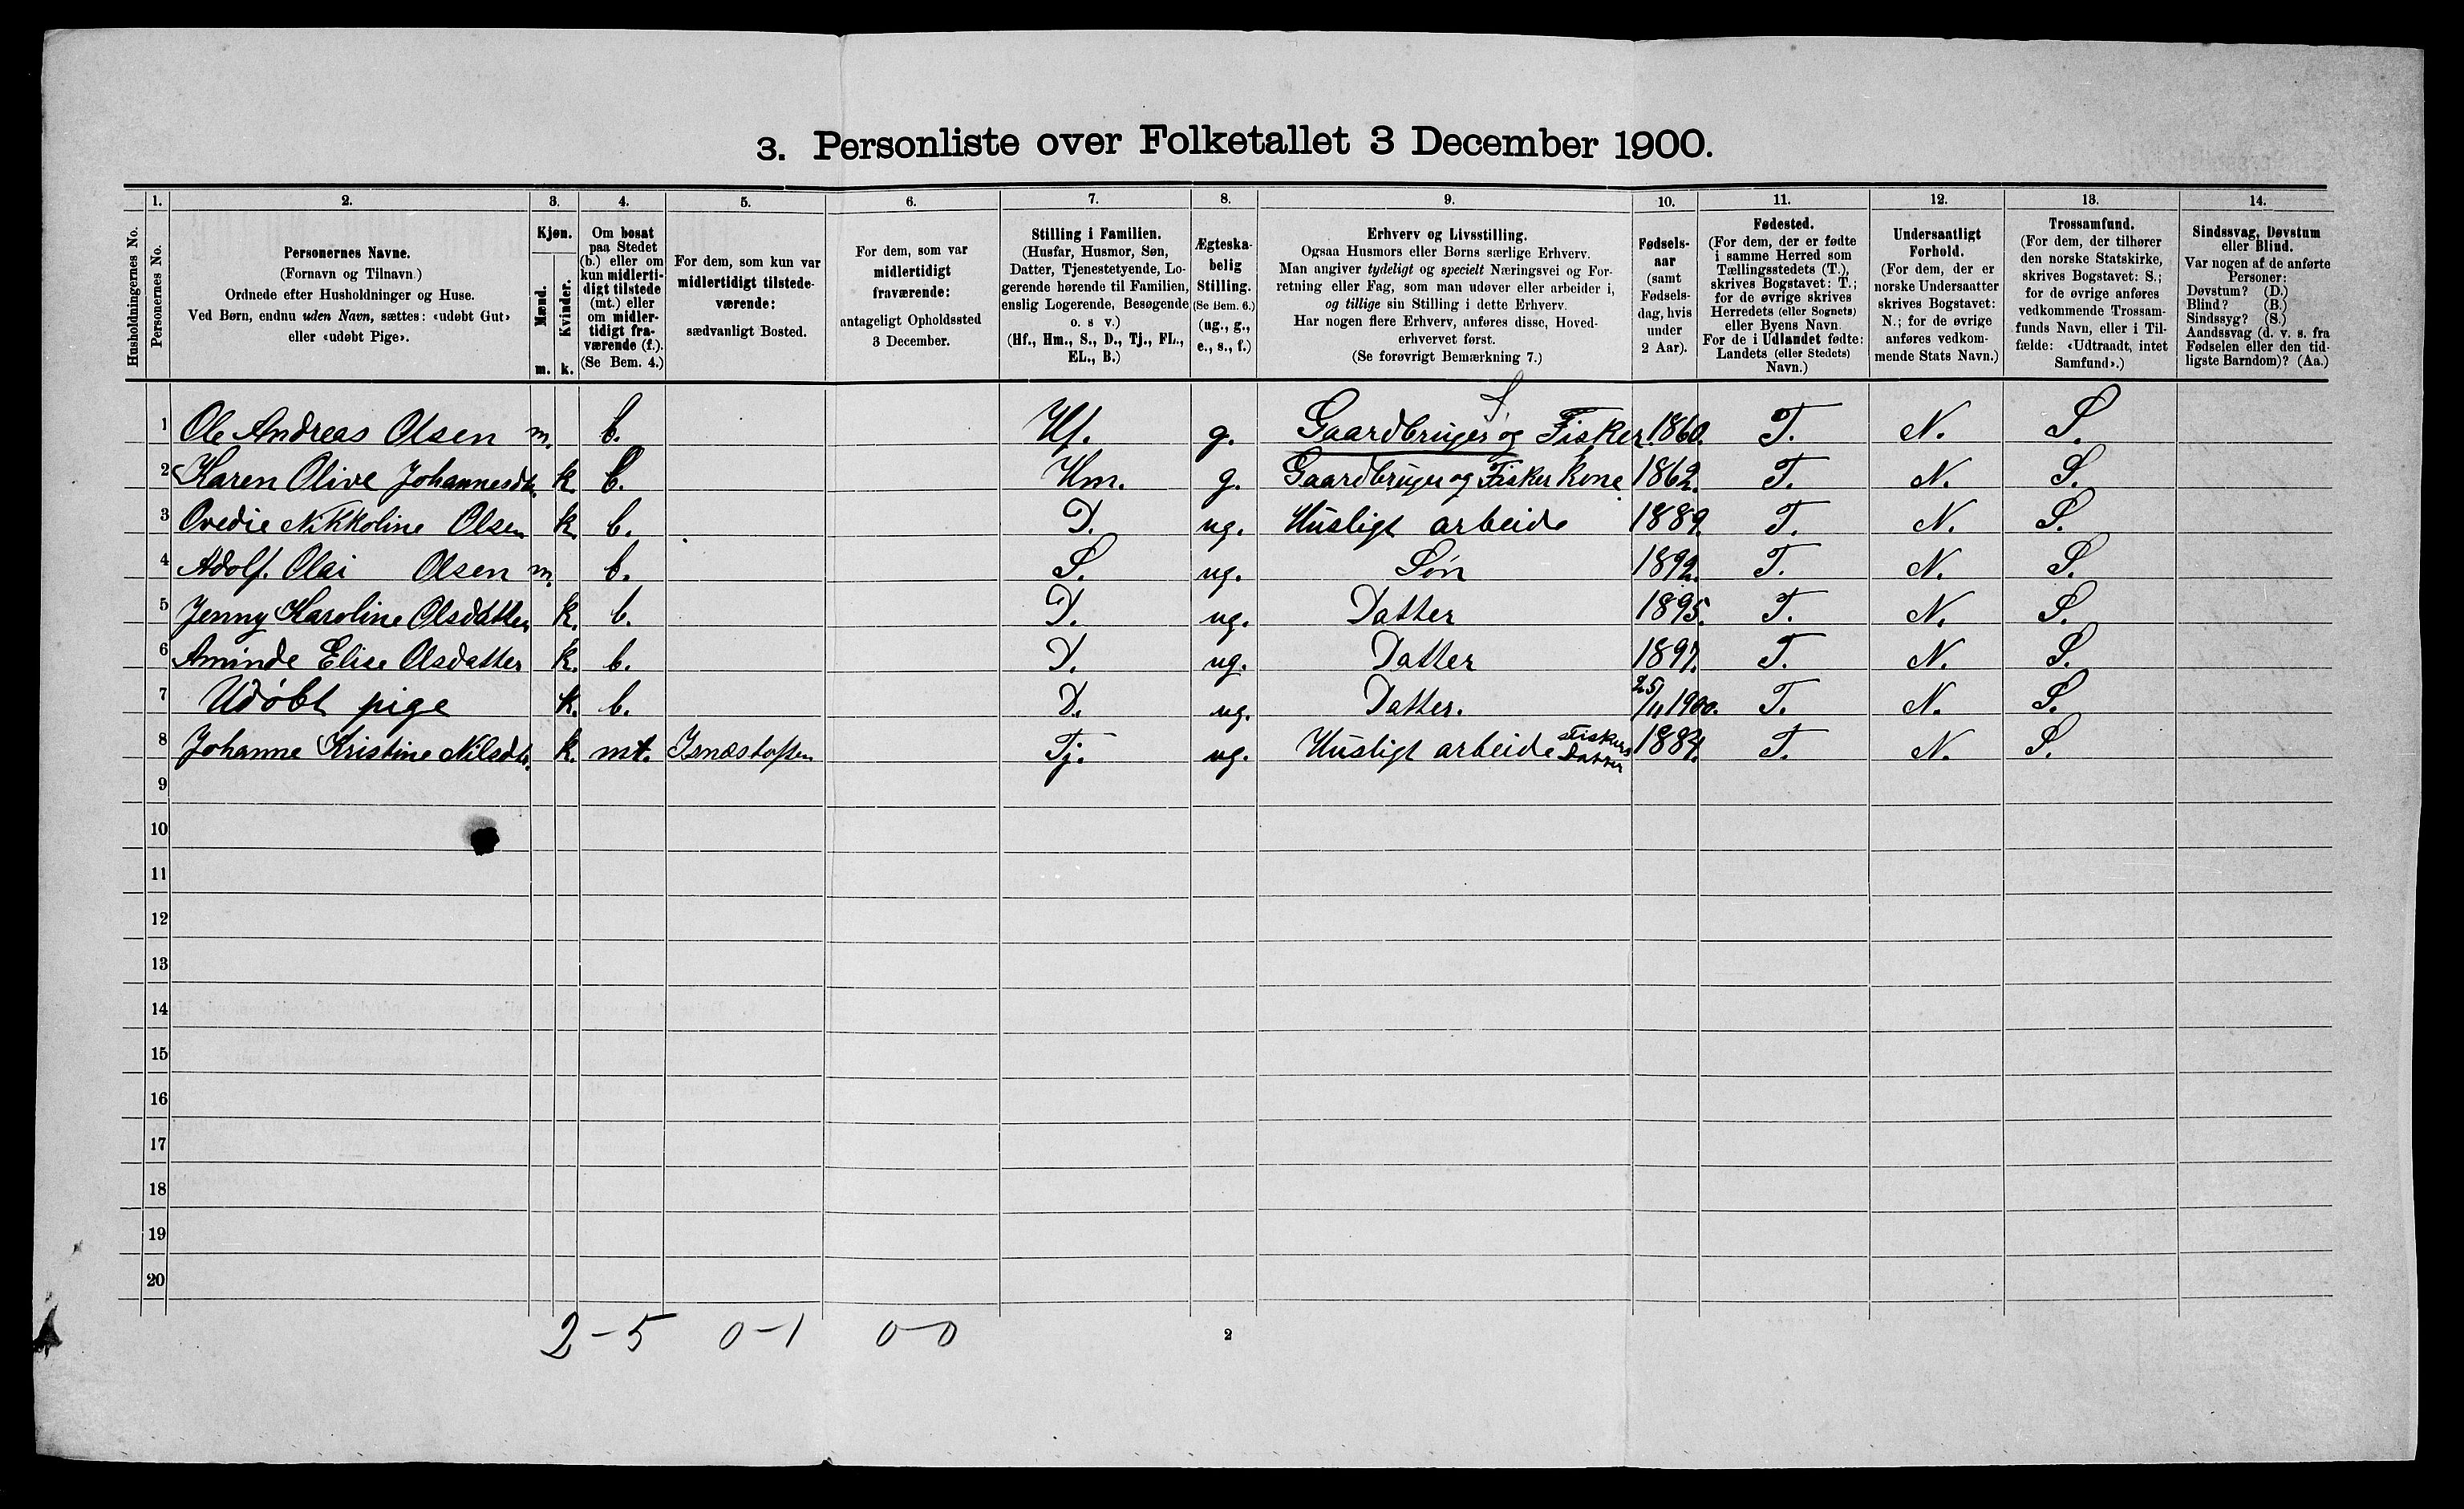 3. Personliste over Folketallet 3 December 1900.
1. 2. 3. 4. 5. 6. 7. 8. 9. 10. 11. 12. 13. 14.
Husholdningernes No.
Personernes No.
Personernes Navne.
(Fornavn og Tilnavn.)
Ordnede efter Husholdninger og Huse.
Ved Børn, endnu uden Navn, sættes: «udøbt Gut»
eller «udøbt Pige».
Kjøn.
Mænd.
Kvinder.
m. k.
Om bosat
paa Stedet
(b.) eller om
kun midlerti-
digt tilstede
(mt.) eller
om midler-
tidigt fra-
værende (f.).
(Se Bem. 4.)
For dem, som kun var
midlertidigt tilstede-
værende:
sædvanligt Bosted.
For dem, som var
midlertidigt
fraværende:
antageligt Opholdssted
3 December.
Stilling i Familien.
(Husfar, Husmor, Søn,
Datter, Tjenestetyende, Lo-
gerende hørende til Familien,
enslig Logerende, Besøgende
o. s v.)
(Hf., Hm., S., D., Tj., FL.,
EL., B.)
Ægteska-
belig
Stilling.
(Se Bem. 6.)
(ug., g.,
e., s., f.)
Erhverv og Livsstilling.
Ogsaa Husmors eller Børns særlige Erhverv.
Man angiver tydeligt og specielt Næringsvei og For-
retning eller Fag, som man udøver eller arbeider i,
og tillige sin Stilling i dette Erhverv.
Har nogen flere Erhverv, anføres disse, Hoved-
erhvervet først.
(Se forøvrigt Bemærkning 7.)
Fødsels-
aar
(samt
Fødsels-
dag, hvis
under
2 Aar).
Fødested.
(For dem, der er fødte
i samme Herred som
Tællingsstedets (T.),
skrives Bogstavet: T.;
for de øvrige skrives
Herredets (eller Sognets)
eller Byens Navn.
For de i Udlandet fødte:
Landets (eller Stedets)
Navn.)
Undersaatligt
Forhold.
(For dem, der er
norske Undersaatter
skrives Bogstavet:
N.; for de øvrige
anføres vedkom-
mende Stats Navn.)
Trossamfund.
(For dem, der tilhører
den norske Statskirke,
skrives Bogstavet: S.;
for de øvrige anføres
vedkommende Trossam-
funds Navn, eller i Til-
fælde: «Udtraadt, intet
Samfund».)
Sindssvag, Døvstum
eller Blind.
Var nogen af de anførte
Personer:
Døvstum? (D.)
Blind? (B.)
Sindssyg? (S.)
Aandssvag (d. v. s. fra
Fødselen eller den tid-
ligste Barndom)? (Aa.)
S
1 Ole Andreas Olsen m. b. Hf. g. Gaardbruger og Fisker. 1860. T. N. S.
2 Karen Olive Johannesdtr. k. b. Hm. g. Gaardbruger og Fisker kone 1862. T. N. S.
3 Ovedie Nikkoline Olsen k. b. D. ug. Husligt arbeide 1889. T. N. S.
4 Adolf. Olai Olsen m. b. S. ug. Søn 1892. T. N. S.
5 Jenny Karoline Olsdatter k. b. D. ug. Datter 1895. T. N. S.
6 Aminde Elise Olsdatter k. b. D. ug. Datter 1897. T. N. S.
7 Udøbt pige k. b. D. ug. Datter. 25/11 1900. T. N. S.
8 Johanne Kristine Nilsdtr. k. mt. Isnæstoften Tj. ug. Husligt arbeide Fiskers Datter 1884. T. N. S.
9
10
11
12
13
14
15
16
17
18
19
20
2-5 0-1 0-0
2